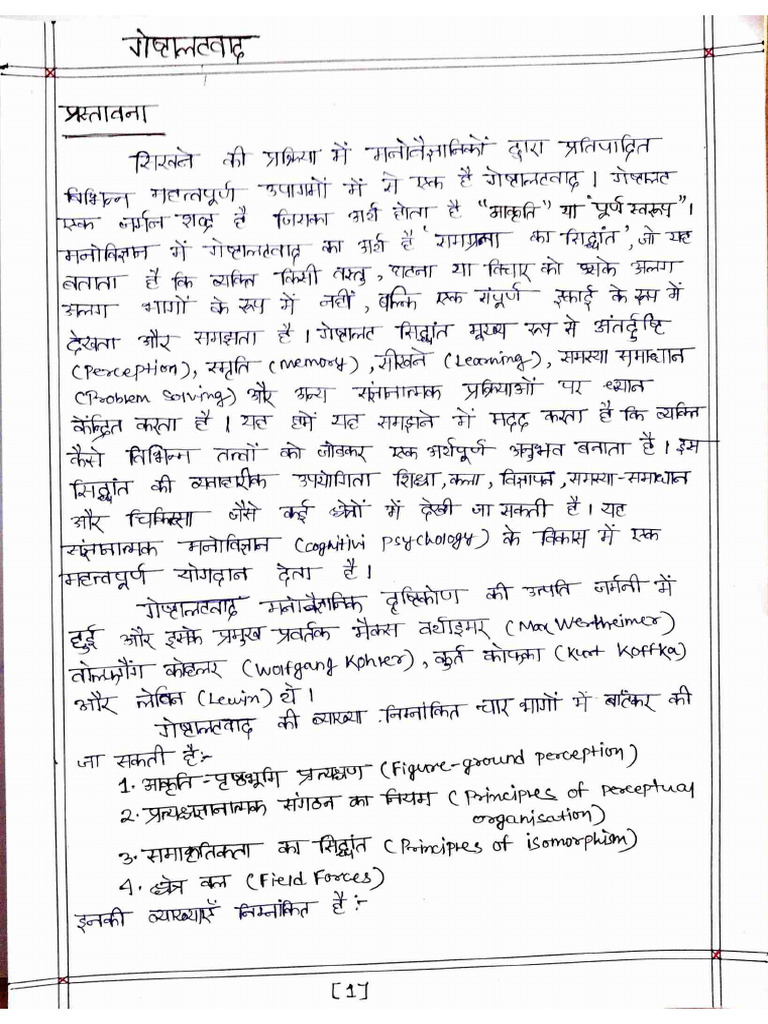 गेष्टालटवाद
प्रस्तावना
सिखने की प्रक्रिया में मनोवैज्ञानिकों द्वारा प्रतिपादित
विभिन्न महत्वपूर्ण उपागमों में से एक है गेष्टालटवाद । गेष्टालट
एक जर्मन शब्द है जिसका अर्थ होता है "आकृति" या "पूर्ण स्वरूप" ।
मनोविज्ञान में गेष्टालटवाद का अर्थ है 'समग्रता का सिद्धांत', जो यह
बताता है कि व्यक्ति किसी वस्तु, घटना या विचार को उसके अलग
अलग भागों के रूप में नहीं, बल्कि एक संपूर्ण इकाई के रूप में
देखता और समझता है । गेष्टालट सिद्धांत मुख्य रूप से अंतर्दृष्टि
(Perception), स्मृति (memory), सीखने (Learning), समस्या समाधान
(Problem Solving) और अन्य संज्ञानात्मक प्रक्रियाओं पर ध्यान
केंद्रित करता है । यह हमें यह समझने में मदद करता है कि व्यक्ति
कैसे विभिन्न तत्वों को जोडकर एक अर्थपूर्ण अनुभव बनाता है । इस
सिद्धांत की व्यवाहारीक उपयोगिता शिक्षा, कला, विज्ञापन, समस्या-समाधान
और चिकित्सा जैसे कई क्षेत्रों में देखी जा सकती है । यह
संज्ञानात्मक मनोविज्ञान (cognitivi psychology) के विकास में एक
महत्वपूर्ण योगदान देता है ।
गेष्टालटवाद मनोवैज्ञानिक दृष्टिकोण की उत्पति जर्मनी में
हुई और इसके प्रमुख प्रवर्तक मैक्स वर्थाइमर (Max Wertheimer)
वोल्फगैंग कोहलर (Wolfgang Kohler), कुर्त कोफ्का (Kurt Koffka)
और लेविन (Lewin) थे ।
गेष्टालटवाद की व्याख्या निम्नांकित चार भागों में बाँटकर की
जा सकती है:-
1. आकृति - पृष्ठभूमि प्रत्यक्षण (Figure-ground perception)
2. प्रत्यक्षज्ञानात्मक संगठन का नियम (Principles of perceptual
organisation)
3. समाकृतिकता का सिद्धांत (Principles of isomorphism)
4. क्षेत्र बल (Field Forces)
इनकी व्याख्याएँ निम्नांकित है :-
[1]